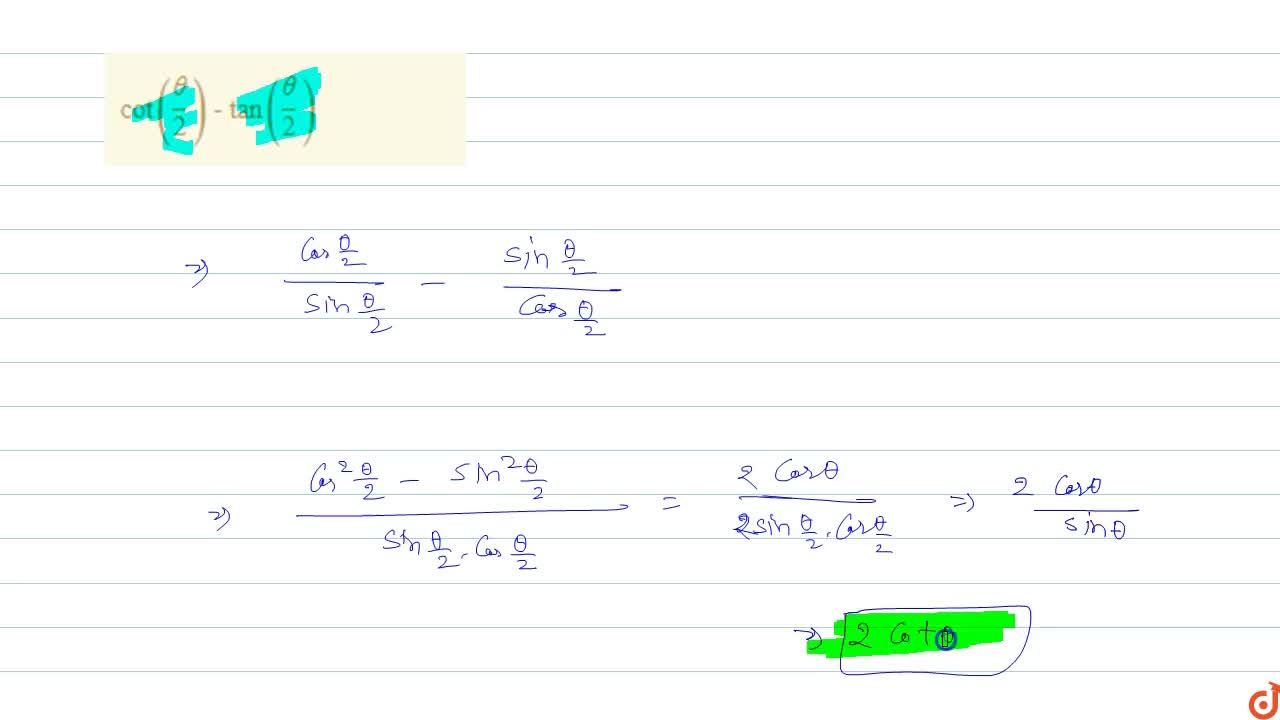 cot(θ/2) - tan(θ/2)
⇒ Cos θ/2 / Sin θ/2 − Sin θ/2 / Cos θ/2
⇒ Cos² θ/2 − Sin² θ/2 / Sin θ/2 . Cos θ/2 = 2 Cos θ / 2 Sin θ/2 . Cos θ/2 ⇒ 2 Cos θ / Sin θ
⇒ 2 Cot θ